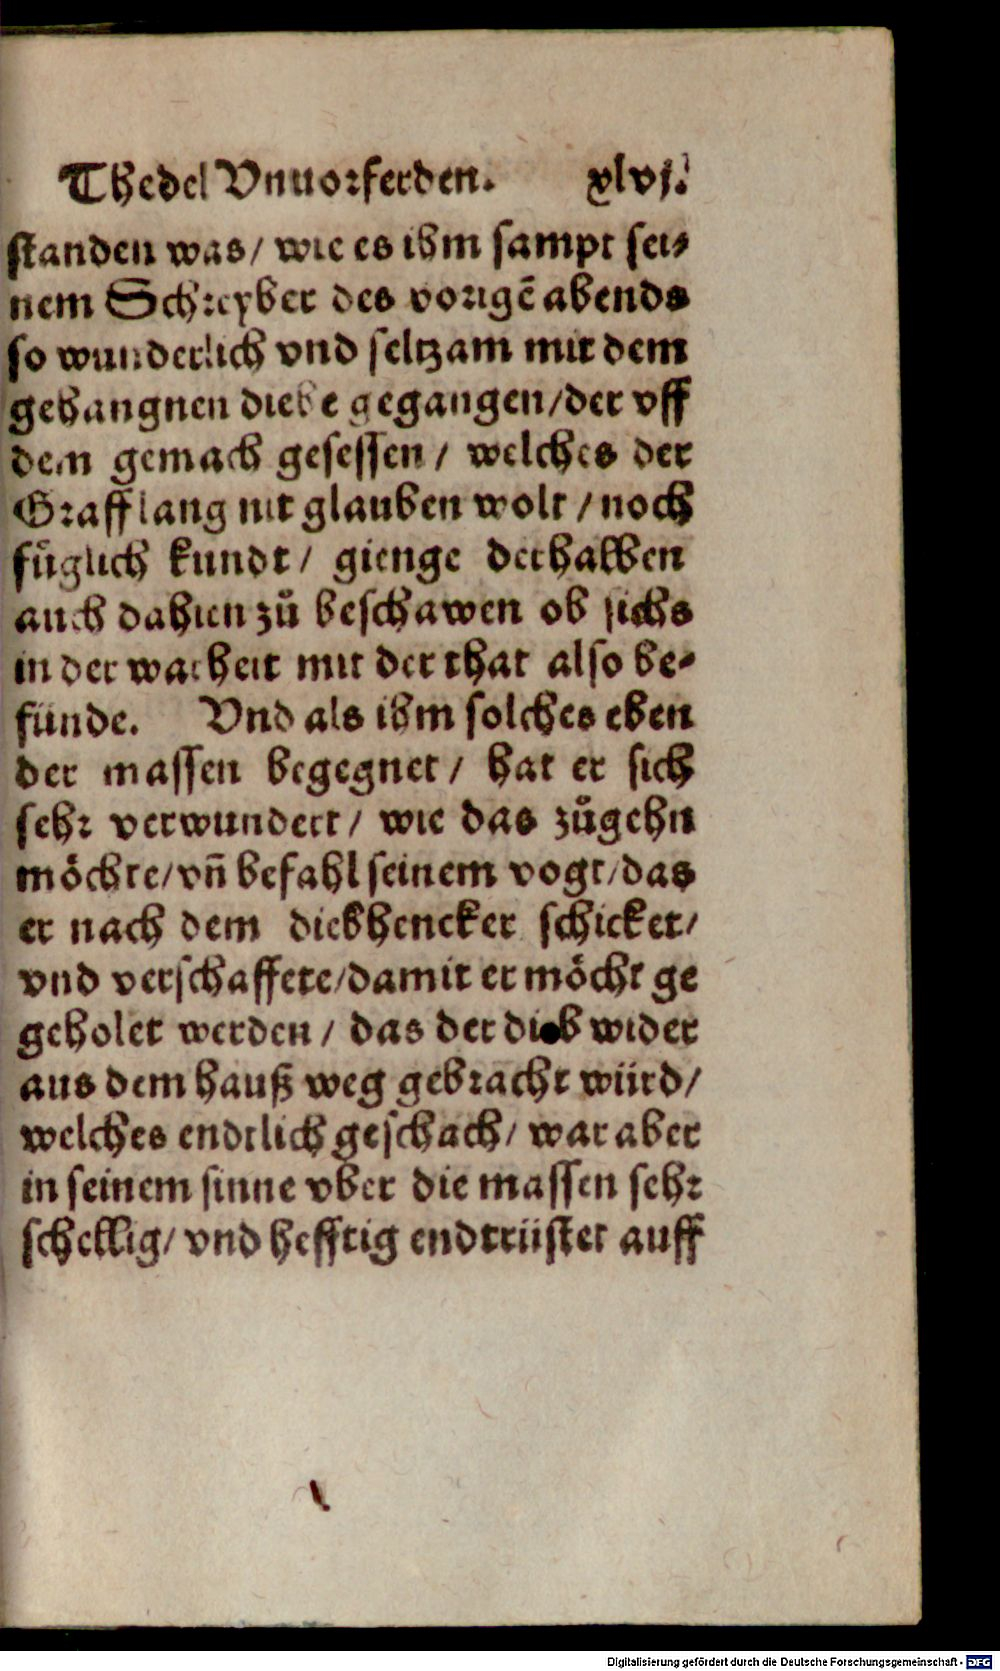 Thedel Vnuorferden. xlvj.
standen was/ wie es ihm sampt sei⸗
nem Schreyber des vorigẽ abends
so wunderlich vnd seltzam mit dem
gehangnen diebe gegangen/der vff
dem gemach gesessen/ welches der
Graff lang nit glauben wolt/noch
fůglich kundt/ gienge derhalben
auch dahien zů beschawen ob sichs
in der warheit mit der that also be⸗
fünde. Vnd als ihm solches eben
der massen begegnet/ hat er sich
sehr verwundert/ wie das zůgehn
möchte/vñ befahl seinem vogt/das
er nach dem diebhencker schicket/
vnd verschaffete/damit er möcht ge
geholet werden/ das der dieb wider
aus dem hauß weg gebracht würd/
welches endtlich geschach/ war aber
in seinem sinne vber die massen sehr
schellig/ vnd hefftig endtrüstet auff
Digitalisierung gefördert durch die Deutsche Forschungsgemeinschaft - DFG